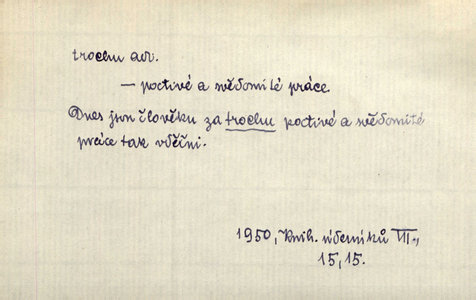 trochu adv.
— poctivé a svědomité práce.
Dnes jsou člověku za trochu poctivé a svědomité
práce tak vděčni.
1950, Knih. úderníků VII.,
15, 15.